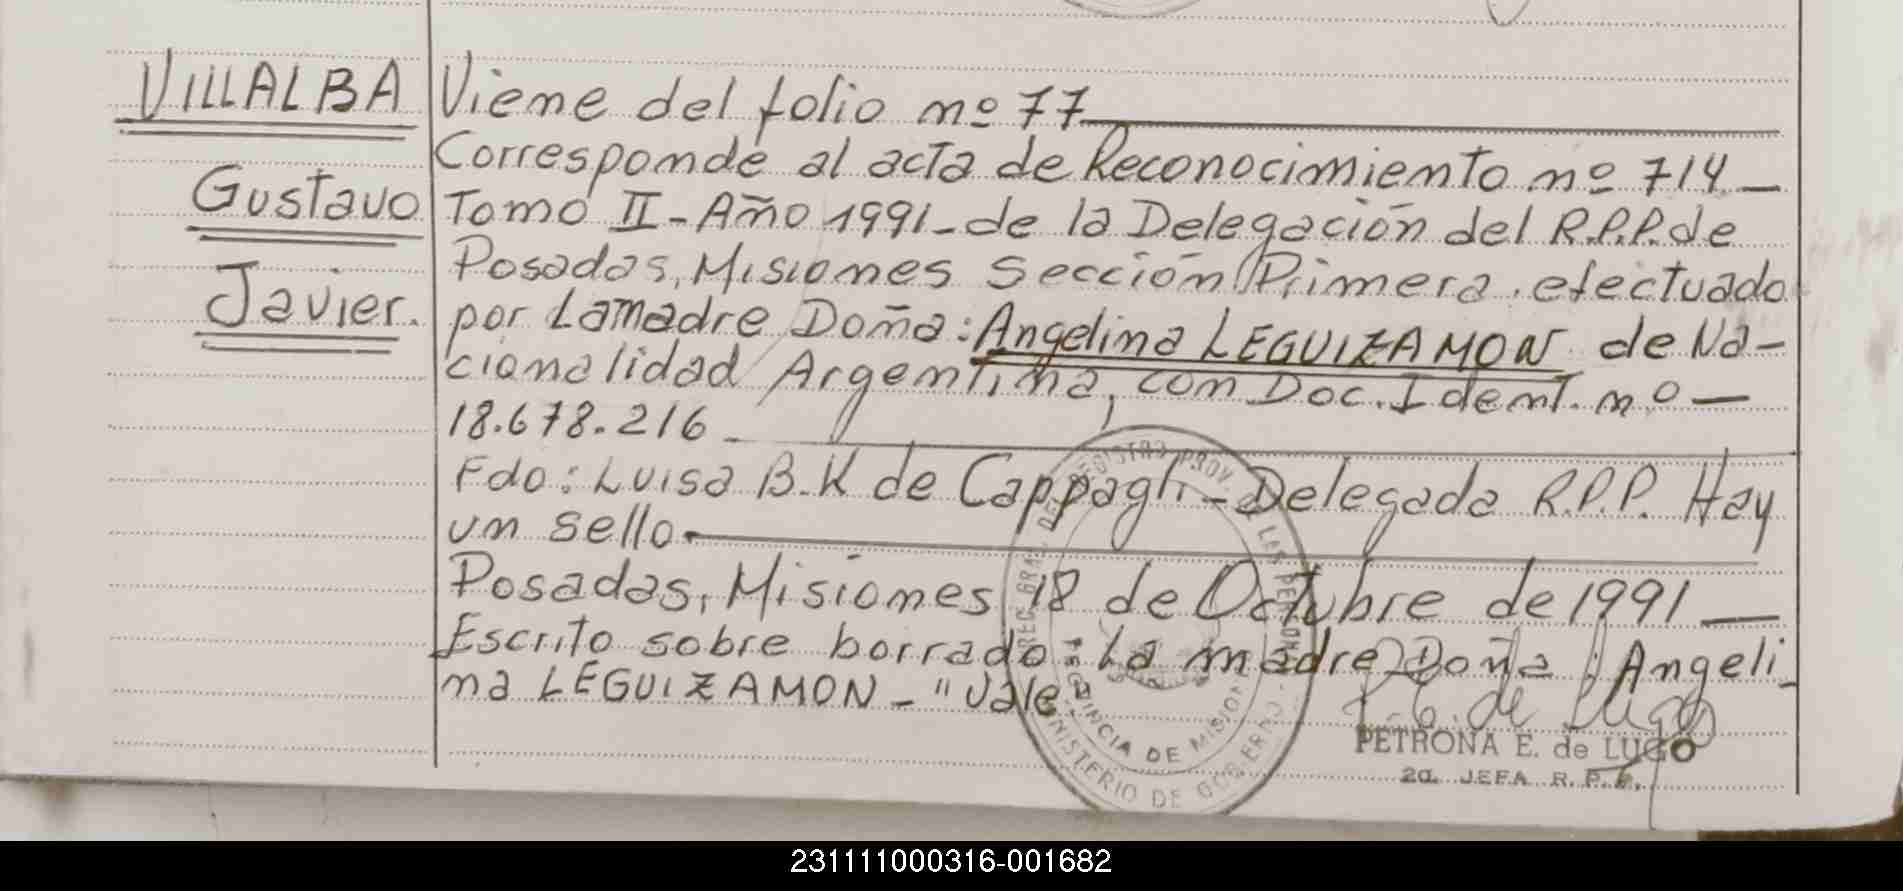 VILLALBA
Gustavo
Javier.
Viene del folio nº 77
Corresponde al acta de Reconocimiento nº 714 —
Tomo II - Año 1991 - de la Delegación del R.P.P. de
Posadas, Misiones Sección Primera, efectuado
por La madre Doña: Angelina LEGUIZAMON de Na-
cionalidad Argentina, con Doc. Ident. nº —
18.678.216
Fdo: Luisa B. K de Cappagli - Delegada R.P.P. Hay
un sello
Posadas, Misiones 18 de Octubre de 1991 —
Escrito sobre borrado: La madre Doña: Angeli-
na LEGUIZAMON - "Vale"
REG. GRAL. DEL REGISTRO PROV. DE LAS PERSONAS
PROVINCIA DE MISIONES
MINISTERIO DE GOBIERNO
de Lugo
PETRONA E. de LUGO
2a. JEFA R. P. P.
231111000316-001682